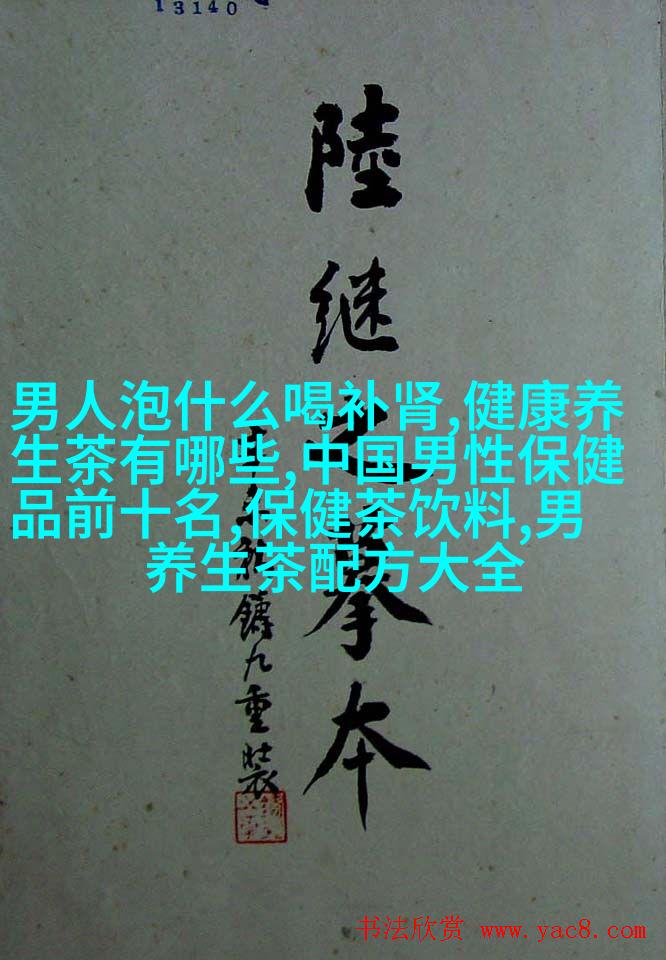 13140
陸继之摹本
鑄九重裝
男人泡什么喝补肾,健康养
生茶有哪些,中国男性保健
品前十名,保健茶饮料,男
养生茶配方大全
书法欣赏 www.yac8.com